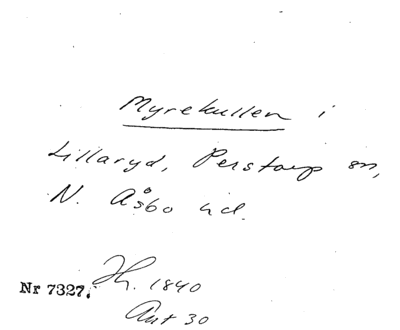 Myrekullen i
Lillaryd, Perstorp sn,
N. Åsbo hd.
Nr 7327. Jh. 1840
Ant 30